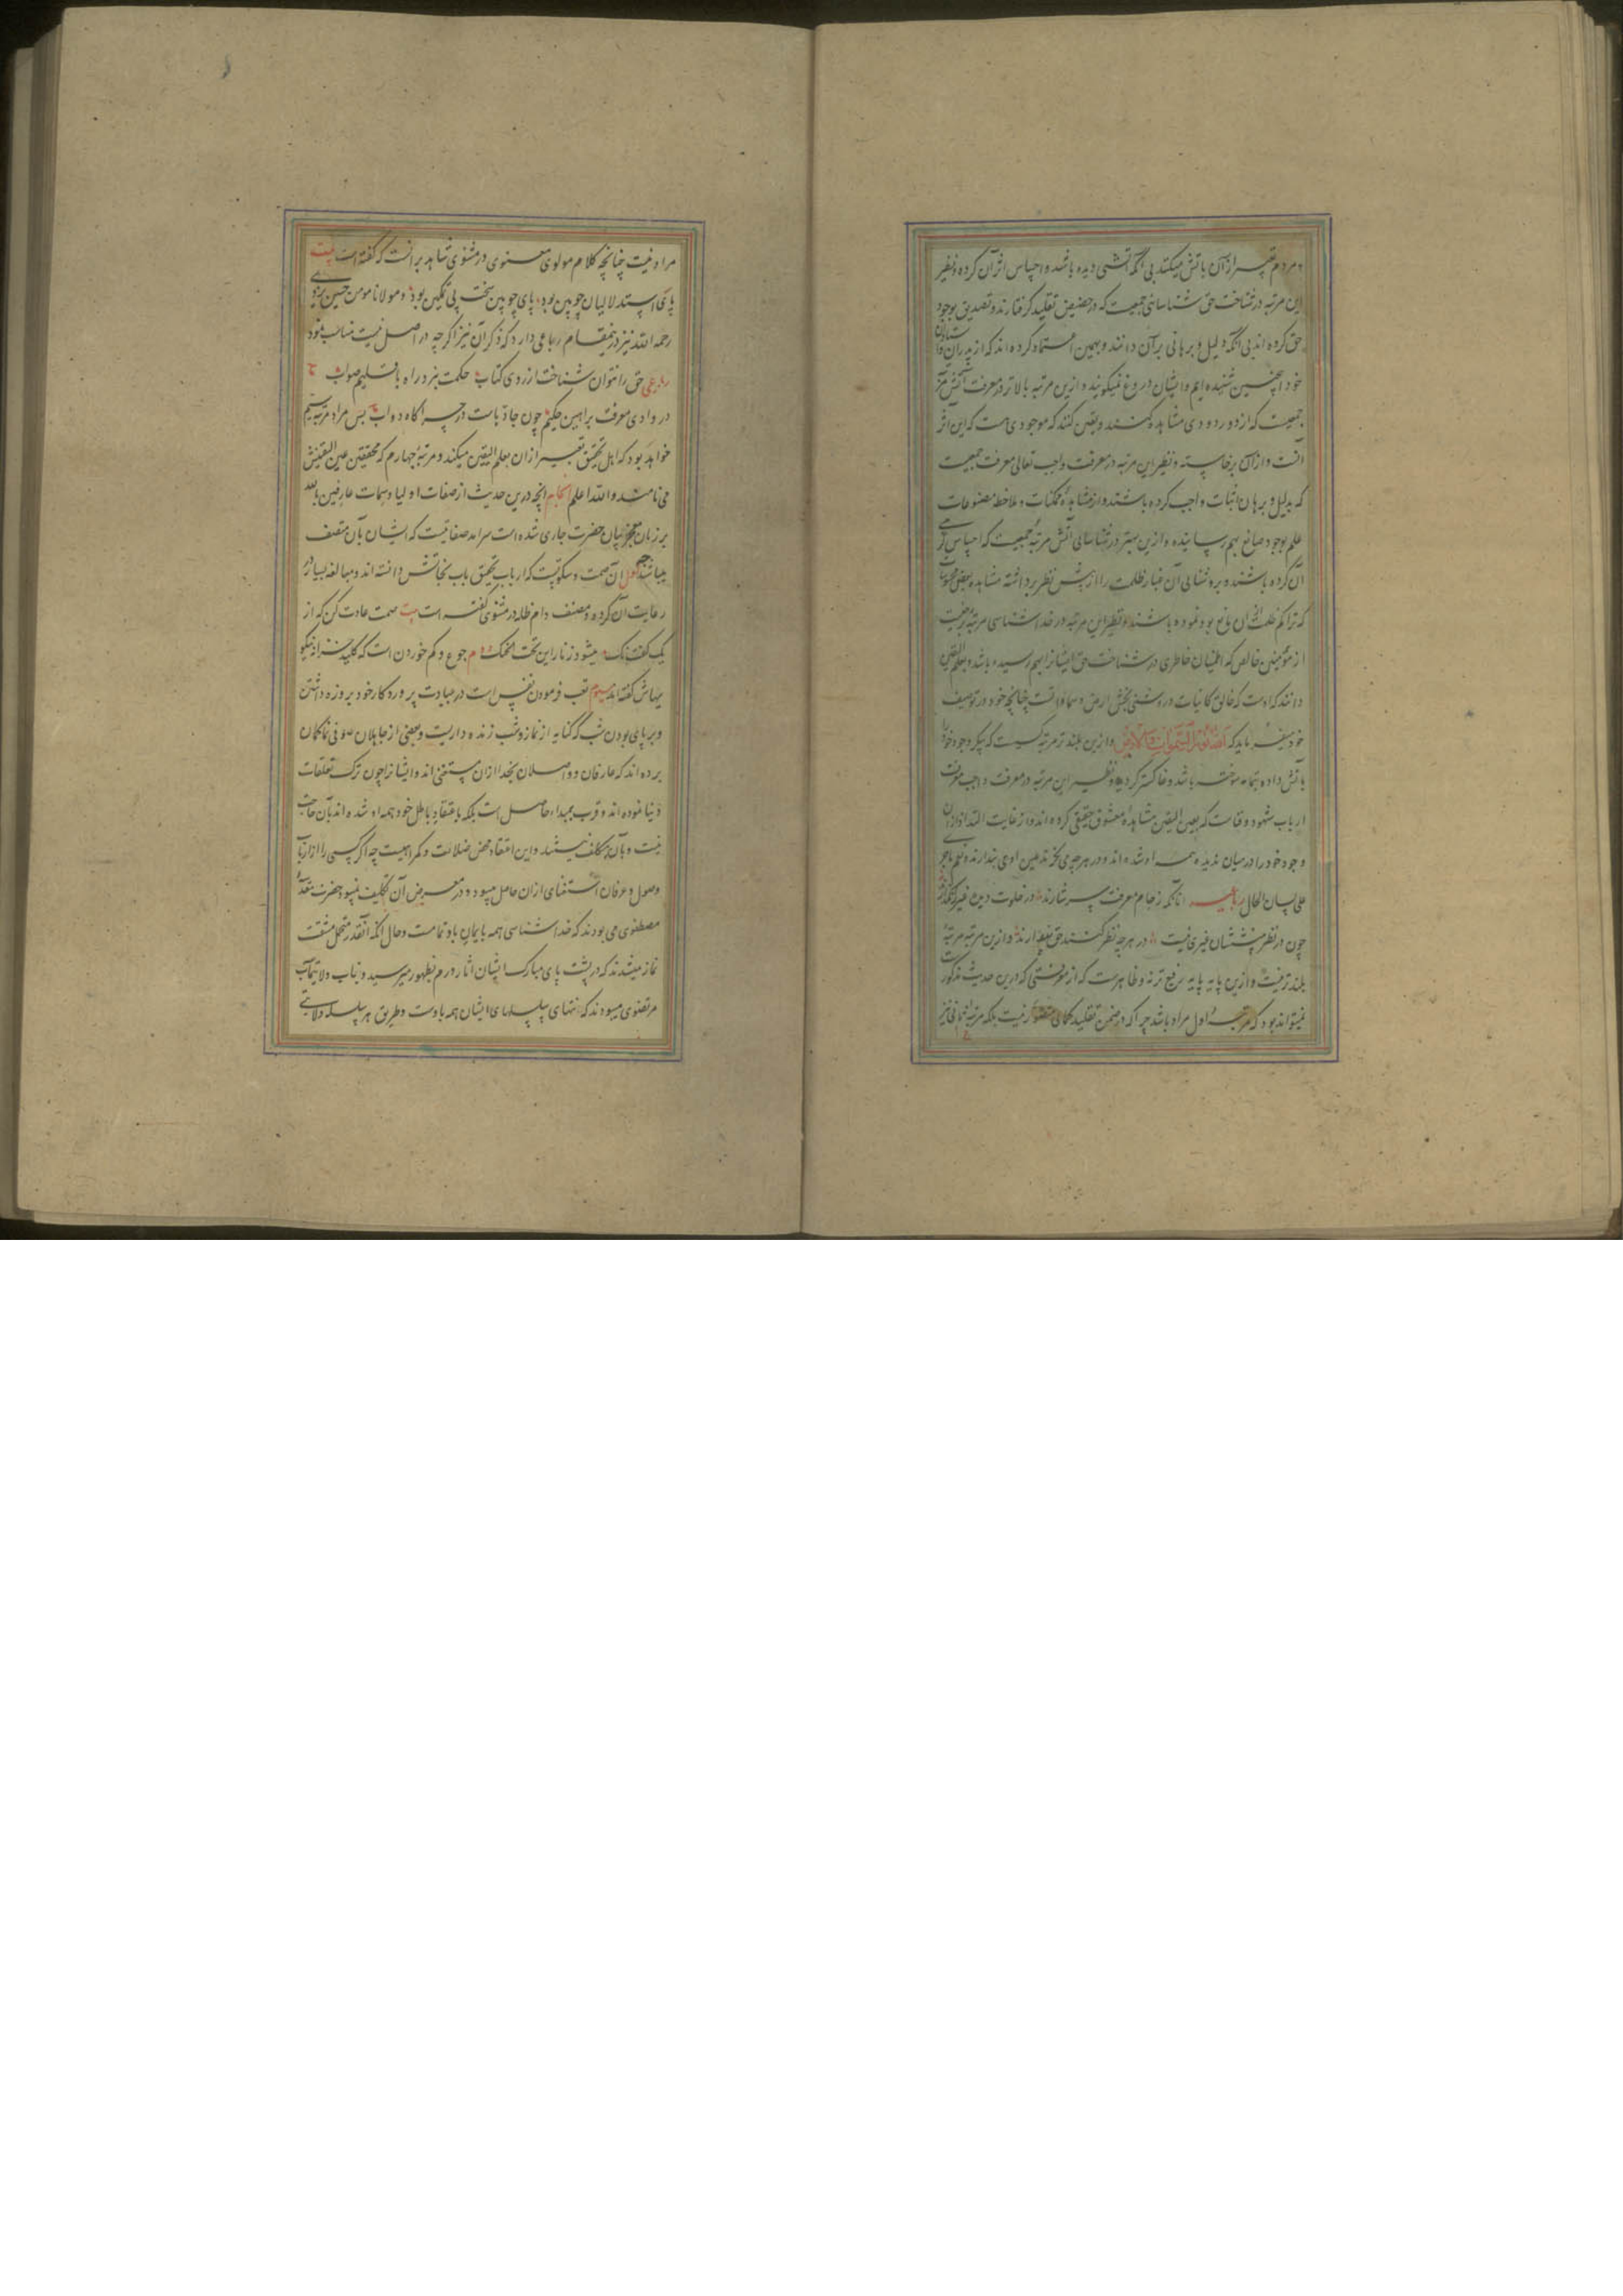 مردم تعبیر ازان باتش میکنند بی آنکه آتشی دیده باشند و احساس اثر آن کرده و نظیر
این مرتبه در شناخت حق شناسائی جمعیست که در حضیض تقلید گرفتارند و تصدیق بوجود
حق کرده اند بی آنکه دلیل و برهانی برآن دانند و بهمین اعتماد کرده اند که از پدران و استادان
خود اینچنین شنیده ایم و ایشان دروغ نمیگویند و ازین مرتبه بالاتر در معرفت آتش
جمعیست که از دور دودی مشاهده کنند و یقین کنند که موجودی هست که این اثر
آنست و ازان برخاسته و نظیر این مرتبه در معرفت واجب تعالی معرفت جمعیست
که بدلیل و برهان اثبات واجب کرده باشند و از مشاهدهٔ ممکنات و ملاحظهٔ مصنوعات
علم بوجود صانع بهم رسانیده و ازین بهتر در شناسائی آتش مرتبهٔ جمعیست که احساس گرمی
آن کرده باشند و بروشنائی آن غبار ظلمت را از پیش نظر برداشته مشاهده بعضی محسوسات
که تراکم ظلمت ازان مانع بود نموده باشند و نظیر این مرتبه در خداشناسی مرتبهٔ
از مؤمنین خالص که اطمینان خاطری در شناخت حق ایشانرا بهم رسیده باشد و بعلم الیقین
دانند که اوست که خالق کاینات و روشنی بخش ارض و سماواتست چنانچه خود در توصیف
خود میفرماید که الله نور السموات والارض و ازین بلندتر مرتبه کسیست که پیکر وجود خود را
باتش داده بتمامه سوخته باشد و خاکستر گردیده و نظیر این مرتبه در معرفت واجب معرفت
ارباب شهود و فناست که بعین الیقین مشاهدهٔ معشوق حقیقی کرده اند و از غایت التذاذ ازان
وجود خود را در میان ندیده همه او شده اند و در هر چیزی که نگرند عین او می پندارند و نعم ما جری
علی لسان الحال رباعیه آنانکه ز جام معرفت سرشارند در خلوت دیده غیر را نگذارند
چون در نظر شهودشان غیری نیست در هر چه نظر کنند حق پندارند و ازین مرتبه مرتبهٔ
بلندتر نیست و ازین پایه پایه رفیع تر نه و ظاهرست که از معرفتی که درین حدیث مذکورست
نمیتواند بود که مرتبهٔ اول مراد باشد چرا که در ضمن تقلید کمالی متصور نیست بلکه مرتبهٔ ثانی نیز
مراد نیست چنانچه کلام مولوی معنوی در مثنوی شاهد برانست که گفته است بیت
پای استدلالیان چوبین بود پای چوبین سخت بی تمکین بود و مولانا مومن حسین یزدی
رحمه الله نیز درینمقام رباعی دارد که ذکر آن نیز اگرچه در اصل نیست مناسب نمود
رباعی حق را نتوان شناخت از روی کتاب حکمت نبرد راه باقلیم صواب
در وادی معرفت براهین حکیم چون جاده‌هاست در چراگاه دواب پس مراد مرتبهٔ سیم
خواهد بود که اهل تحقیق تعبیر ازان بعلم الیقین میکنند و مرتبهٔ چهارم که محققین عین الیقینش
می نامند والله اعلم انچه درین حدیث از صفات اولیا و سمات عارفین بالله
بر زبان معجز بیان حضرت جاری شده است سرآمد صفاتیست که ایشان بآن متصف
میباشند اول ان صمت و سکوتیست که ارباب تحقیق باب نجاتش دانسته اند و مبالغه بسیار در
رعایت آن کرده و مصنف دام ظله در مثنوی گفته است بیت صمت عادت کن که از
یک گفتنک میشود زنار این تحت الحنک دوم جوع و کم خوردن است که کلید خزانه نیکو
یهاش گفته اند سیوم تعب فرمودن نفس است در عبادت پروردگار خود بروزه داشتن
و بر پای بودن شب که کنایه از نماز و شب زنده داریست و بعضی از جاهلان صوفی نما گمان
برده اند که عارفان و واصلان بخدا ازان مستغنی اند و ایشانرا چون ترک تعلقات
دنیا نموده اند و قرب بمبداء حاصل است بلکه باعتقاد باطل خود همه او شده اند بآن حاجت
نیست و بآن مکلف نیستند و این اعتقاد محض ضلالت و گمراهیست چه اگر کسی را از ارباب
وصول و عرفان استغنای ازان حاصل میبود و در معرض آن تکلیف نمیبود حضرت مقدسهٔ
مصطفوی می بودند که خداشناسی همه بایمان باو تمامست و حال آنکه آنقدر متحمل مشقت
نماز میشدند که در پشت پای مبارک ایشان اثار ورم بظهور میرسید و جناب ولایتمآب
مرتضوی میبودند که انتهای سلسلهای ایشان همه باوست و طریق هر سلسله ولایتی